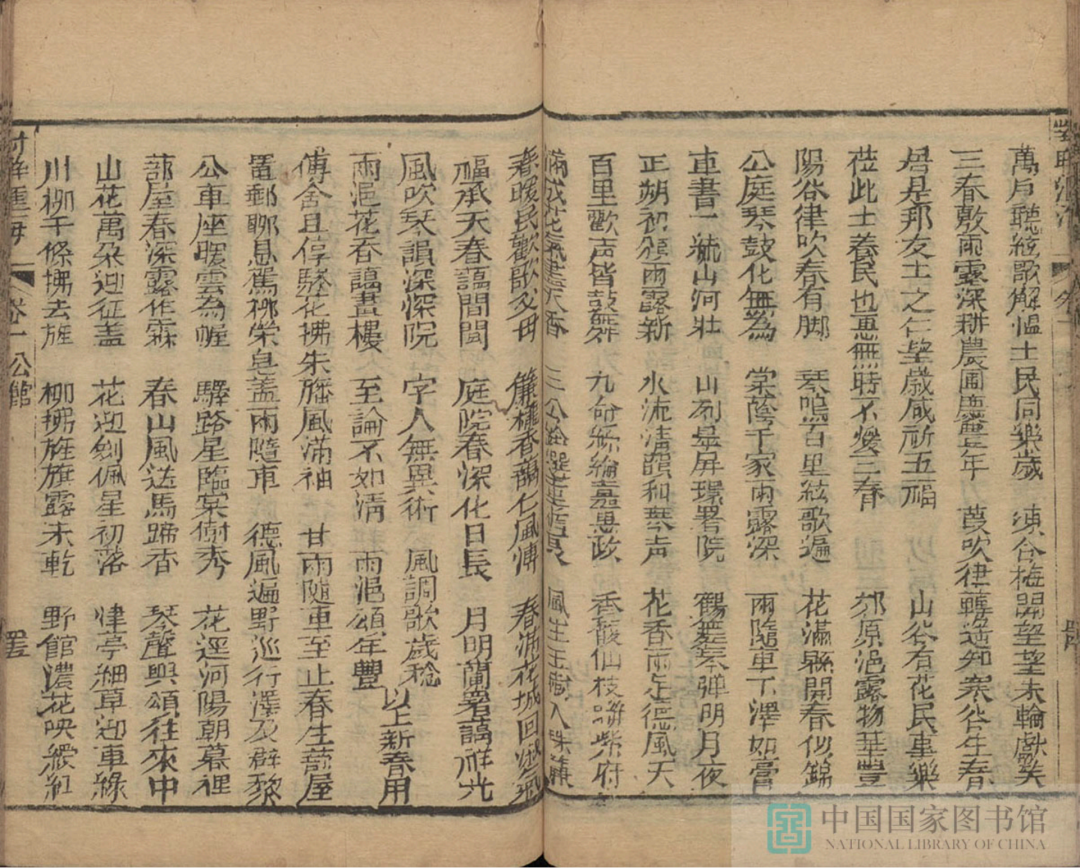 萬戶聽絃歌解慍士民同樂歲　凍合梅開
三春敷雨露深耕農圃慶豐年　葭吹律轉遙知黍谷生春
居是邦友士之仁登歲咸祈五福　山谷有花民車樂
莅此士養民也惠無時不燠三春　郊原浥露物華豐
陽谷律吹春有脚　琴鳴百里絃歌遍　花滿縣開春似錦
公庭琴鼓化無為　棠蔭千家雨露深　雨隨車下澤如膏
車書一統山河壯　山列是屏環署院　鶴舞琴彈明月夜
正朔初頒雨露新　水流清韻和琴声　花香雨足德風天
百里歡声皆鼓舞　九命絲綸嘉惠政　香馥仙枝紫府
滿城花氣天香　三　風生玉樹人
春暖民歡歌父母　簾櫳春藹仁風溥　春滿花城回淑氣
福承天春藹間閭　庭院春深化日長　月明蘭署藹祥光
風吹琴韻深深院　字人無異術　風調歌歲稔
雨浥花春藹畫樓　至論不如清　雨浥頌年豐　以上新春用
傳舍且停驂花拂朱旛風滿袖　甘雨隨車至止春生蔀屋
置郵聊息駕柳縈皂盖雨隨車　德風遍野巡行澤及群黎
公車座暖雲為幄　驛路星臨棠樹秀　花逕河陽朝暮裡
蔀屋春深露作霖　春山風送馬蹄香　琴聲輿頌往來中
山花萬朶迎征盖　花迎劍佩星初落　津亭細草迎車綠
川柳千條拂去旌　柳拂旌旗露未乾　野館濃花映綬紅
卷一　公館　四五